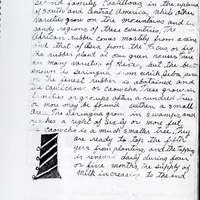 second family Castilloas in the uplands
of South and Central America, while other
varieties grow on the mountains and in
sandy regions of these countries. The
African rubber comes mostly from a vine
and that of Asia from the Ficus or fig.
The rubber plant of our green houses
are many varieties of Hevea, but the best
known is Seringa from which Para
or the finest rubber is obtained and
the Cauchouc or Caoucho Trees grow in
families or groups often a hundred trees
or more may be found within a small
area. The Seringa grow in swamps and
reaches a height of sixty or more feet
Caoucho is a much smaller tree. They
are ready to tap the fifth
year from planting and the tapping
is renewed daily during four
or five months, the supply of
milk increasing to the end